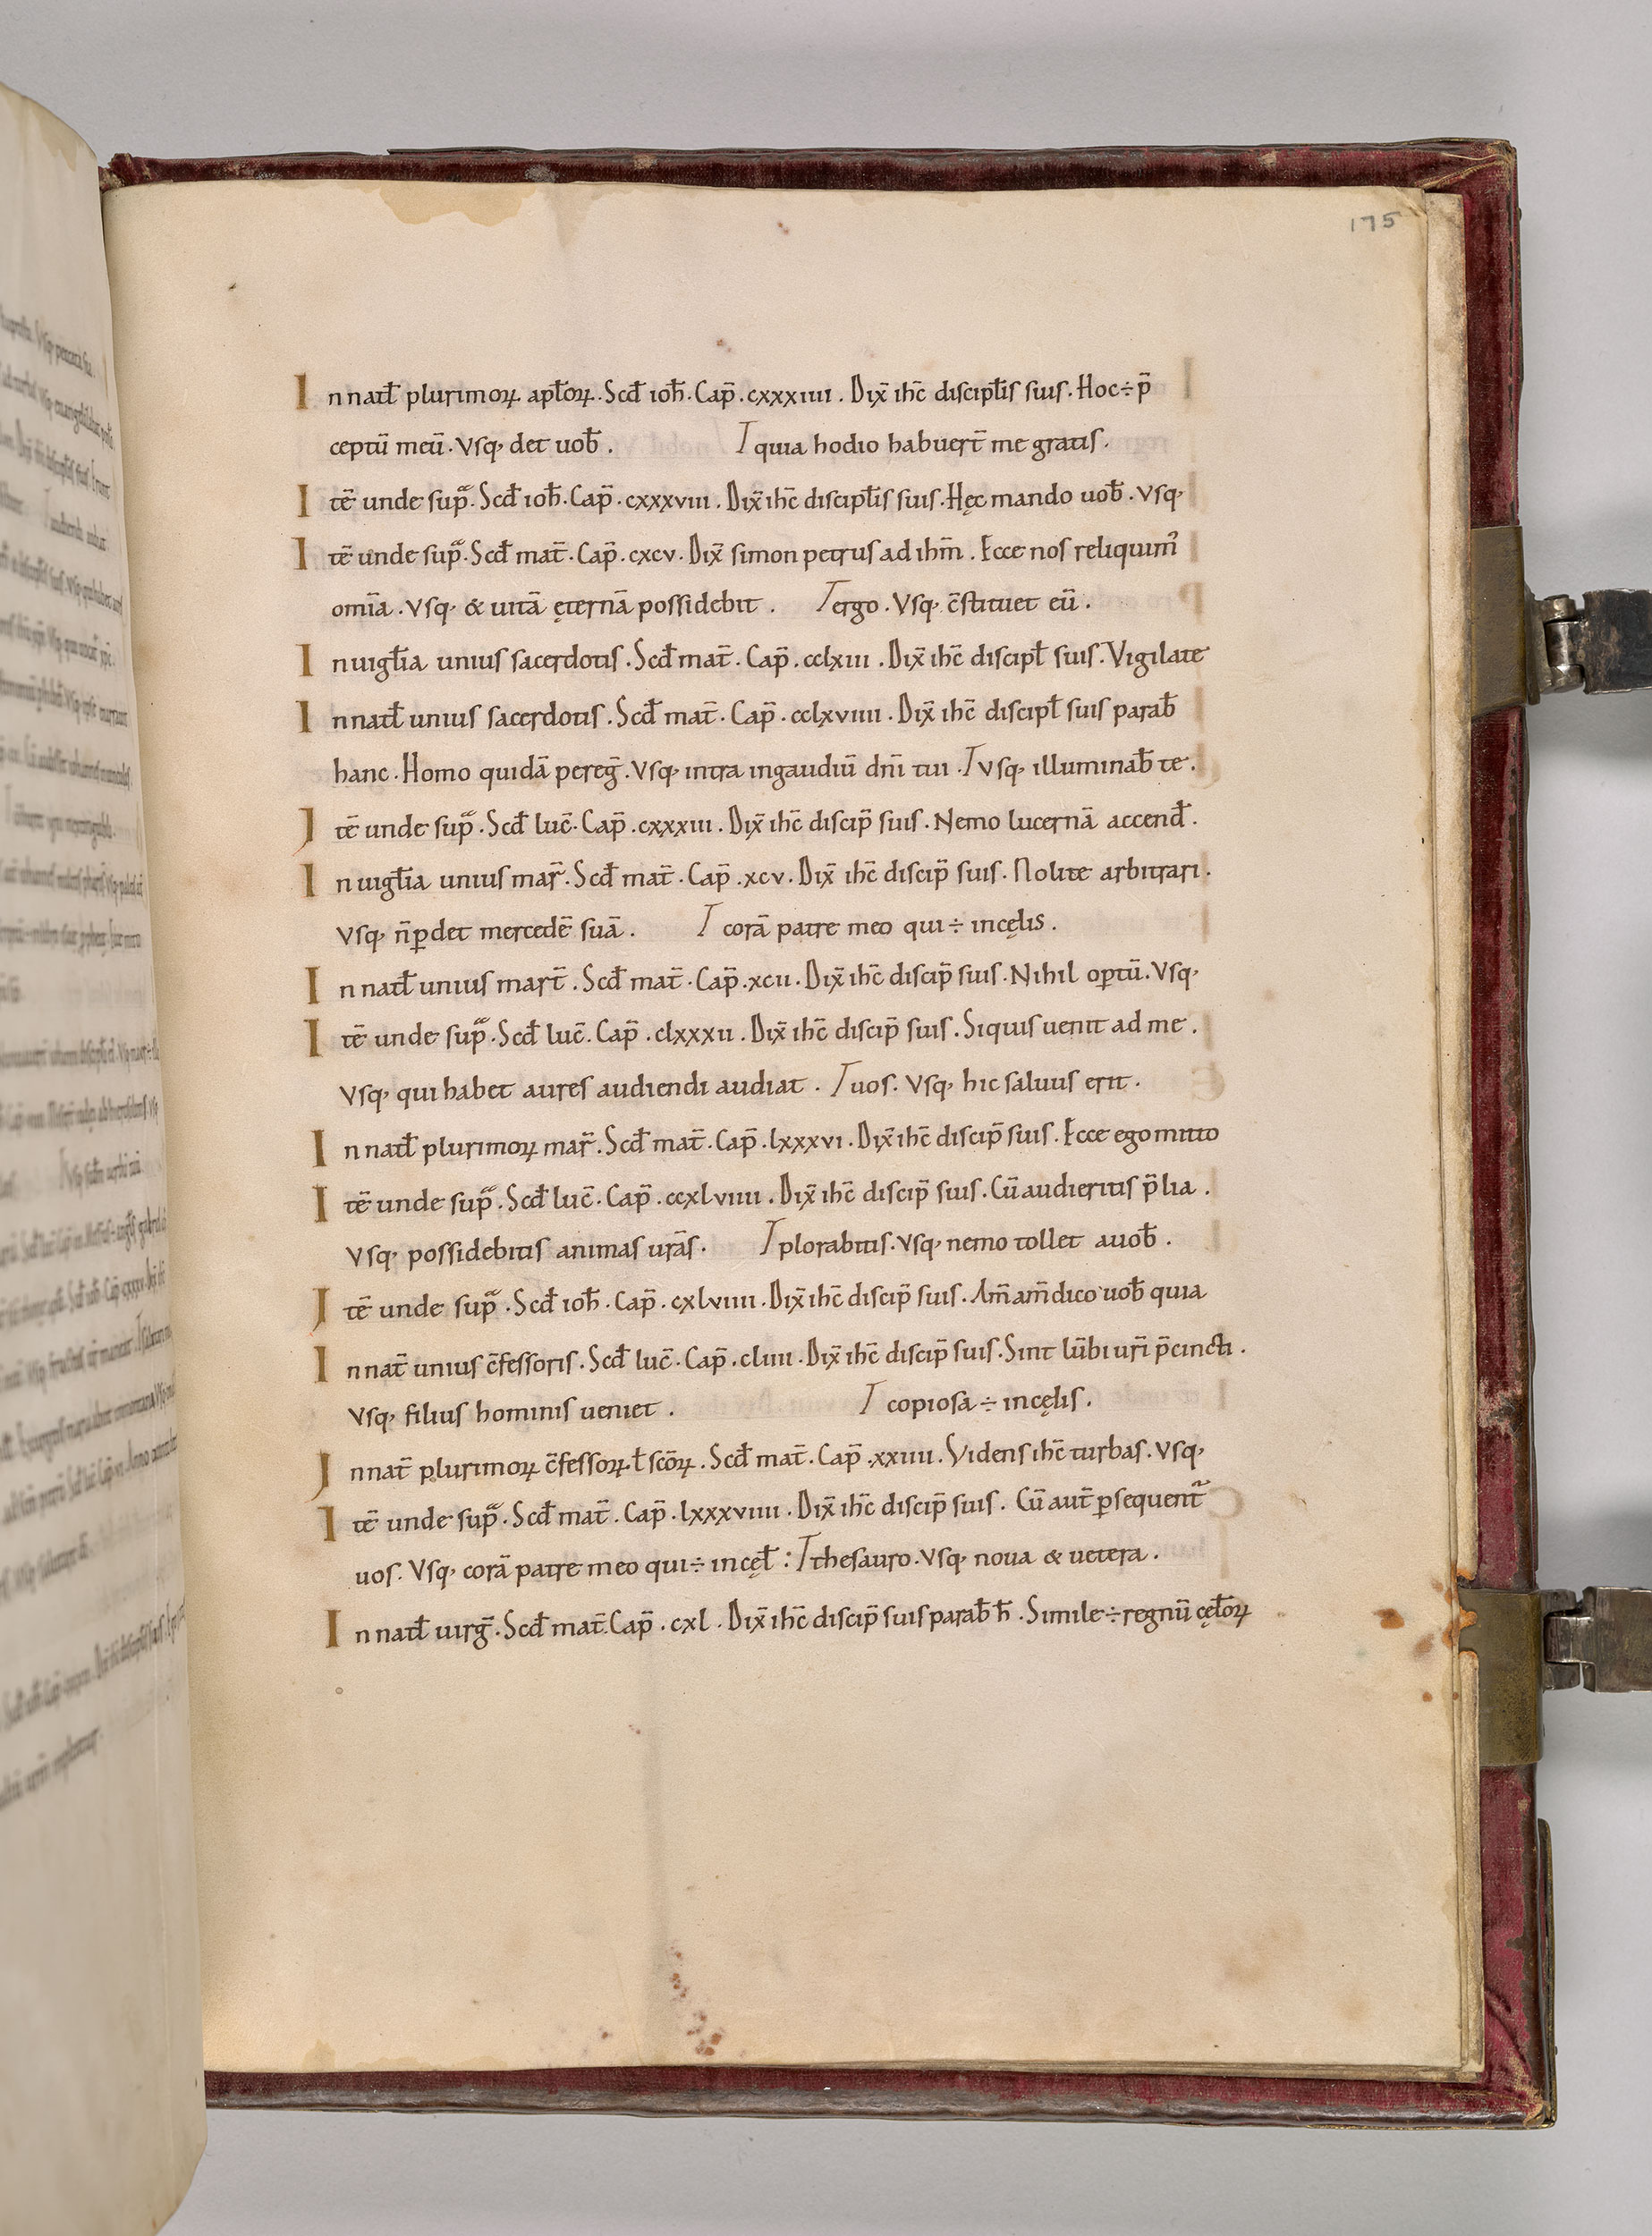 175
In natł plurimoꝝ apłoꝝ. Scđ ioħ. Cap̄. cxxxiiii. Dix̄ ih̄c discipłis suis. Hoc ÷ p̄
ceptū meū. Vsq; det uob̄. I quia hodio habuer̄t me gratis.
Itē unde sup̄ᵃ. Scđ ioħ. Cap̄. cxxxviii. Dix̄ ih̄c discipłis suis. Hęc mando uob̄. Vsq;
Itē unde sup̄ᵃ. Scđ mat̄. Cap̄. cxcv. Dix̄ simon petrus ad ihm̄. Ecce nos reliquim᾿
omīa. Vsq; & uitā ęternā possidebit. I ergo. Vsq; c̄stituet eū.
In uigłia unius sacerdotis. Scđ mat̄. Cap̄. cclxiii. Dix̄ ih̄c discipł suis. Vigilate
In natł unius sacerdotis. Scđ mat̄. Cap̄. cclxviiii. Dix̄ ih̄c discipł suis parab̄
hanc. Homo quidā pereḡ. Vsq; intra ingaudiū dn̄i tui. I vsq; illuminab̄ te.
Itē unde sup̄ᵃ. Scđ luc̄. Cap̄. cxxxiii. Dix̄ ih̄c discip̄ suis. Nemo lucernā accenđ.
In uigłia unius mar̄. Scđ mat̄. Cap̄. xcv. Dix̄ ih̄c discip̄ suis. Nolite arbitrari.
Vsq; n̄ ꝑdet mercedē suā. I corā patre meo qui ÷ incęlis.
In natł unius mart̄. Scđ mat̄. Cap̄. xcii. Dix̄ ih̄c discip̄ suis. Nihil oꝑtū. Vsq;
Itē unde sup̄ᵃ. Scđ luc̄. Cap̄. clxxxii. Dix̄ ih̄c discip̄ suis. Siquis uenit ad me.
Vsq; qui habet aures audiendi audiat. I uos. Vsq; hic saluus erit.
In natł plurimoꝝ mar̄. Scđ mat̄. Cap̄. lxxxvi. Dix̄ ih̄c discip̄ suis. Ecce ego mitto
Itē unde sup̄ᵃ. Scđ luc̄. Cap̄. ccxlviiii. Dix̄ ih̄c discip̄ suis. Cū audieritis p̄lia.
Vsq; possidebitis animas urās. I plorabitis. Vsq; nemo tollet auob̄.
Itē unde sup̄ᵃ. Scđ ioħ. Cap̄. cxlviiii. Dix̄ ih̄c discip̄ suis. Am̄ am̄ dico uob̄ quia
In nat̄ unius c̄fessoris. Scđ luc̄. Cap̄. cliiii. Dix̄ ih̄c discip̄ suis. Sint lūbi ur̄i p̄cincti.
Vsq; filius hominis ueniet. I copiosa ÷ incęlis.
In nat̄ plurimoꝝ c̄fessoꝝ. ł scōꝝ. Scđ mat̄. Cap̄. xxiiii. Videns ih̄c turbas. Vsq;
Itē unde sup̄ᵃ. Scđ mat̄. Cap̄. lxxxviiii. Dix̄ ih̄c discip̄ suis. Cū aut̄ ꝑsequent᷑
uos. Vsq; corā patre meo qui ÷ incęł: I thesauro. Vsq; noua & uetera.
In natł uirḡ. Scđ mat̄. Cap̄. cxl. Dix̄ ih̄c discip̄ suis parab̄ ħ. Simile ÷ regnū cęłoꝝ